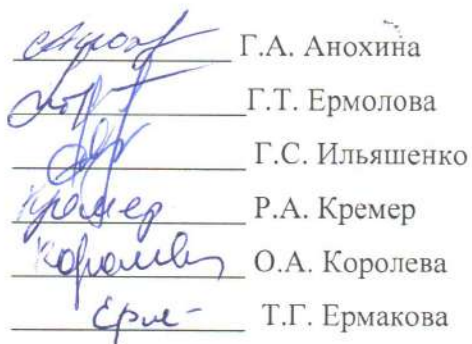 Г.А. Анохина
Г.Т. Ермолова
Г.С. Ильяшенко
Кремер Р.А. Кремер
О.А. Королева
Т.Г. Ермакова